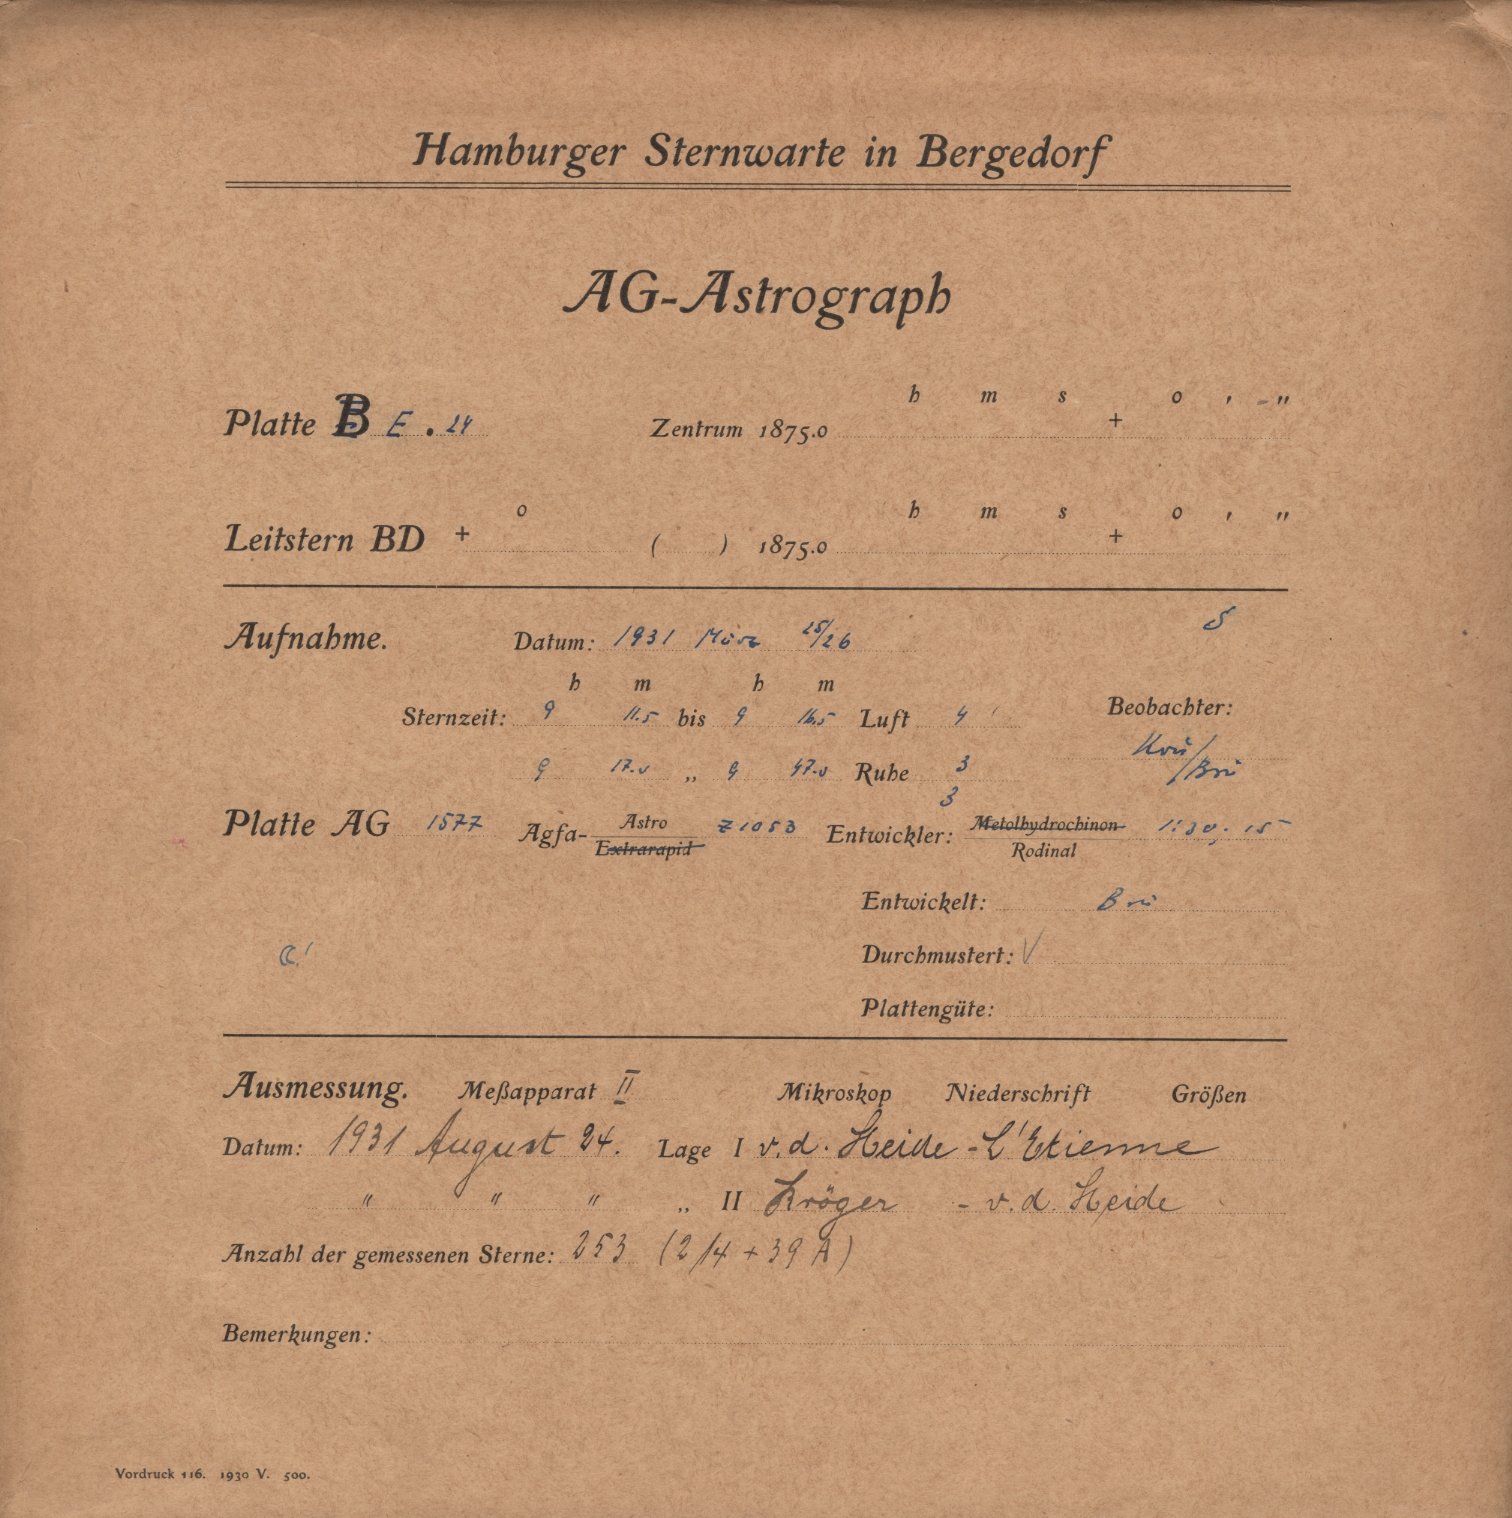 Hamburger Sternwarte in Bergedorf
AG-Astrograph
h m s o , „
Platte B E . 24 Zentrum 1875.0 +
o h m s o , „
Leitstern BD + ( ) 1875.0 +
S
Aufnahme. Datum: 1931 März 25/26
h m h m
Sternzeit: 9 11.5 bis 9 16.5 Luft 4 Beobachter:
Krü/Brü
9 17.0 „ 9 47.0 Ruhe 3
3
Platte AG 1577 Agfa- Astro Extrarapid Z1053 Entwickler: Metolhydrochinon Rodinal 1:30; 15
Entwickelt: Brü
Durchmustert: √
Plattengüte:
Ausmessung. Meßapparat II Mikroskop Niederschrift Größen
Datum: 1931 August 24. Lage I v. d. Heide - L'Etienne
" " " „ II Kröger - v. d. Heide
Anzahl der gemessenen Sterne: 253 (214 + 39 A)
Bemerkungen:
Vordruck 116. 1930 V. 500.